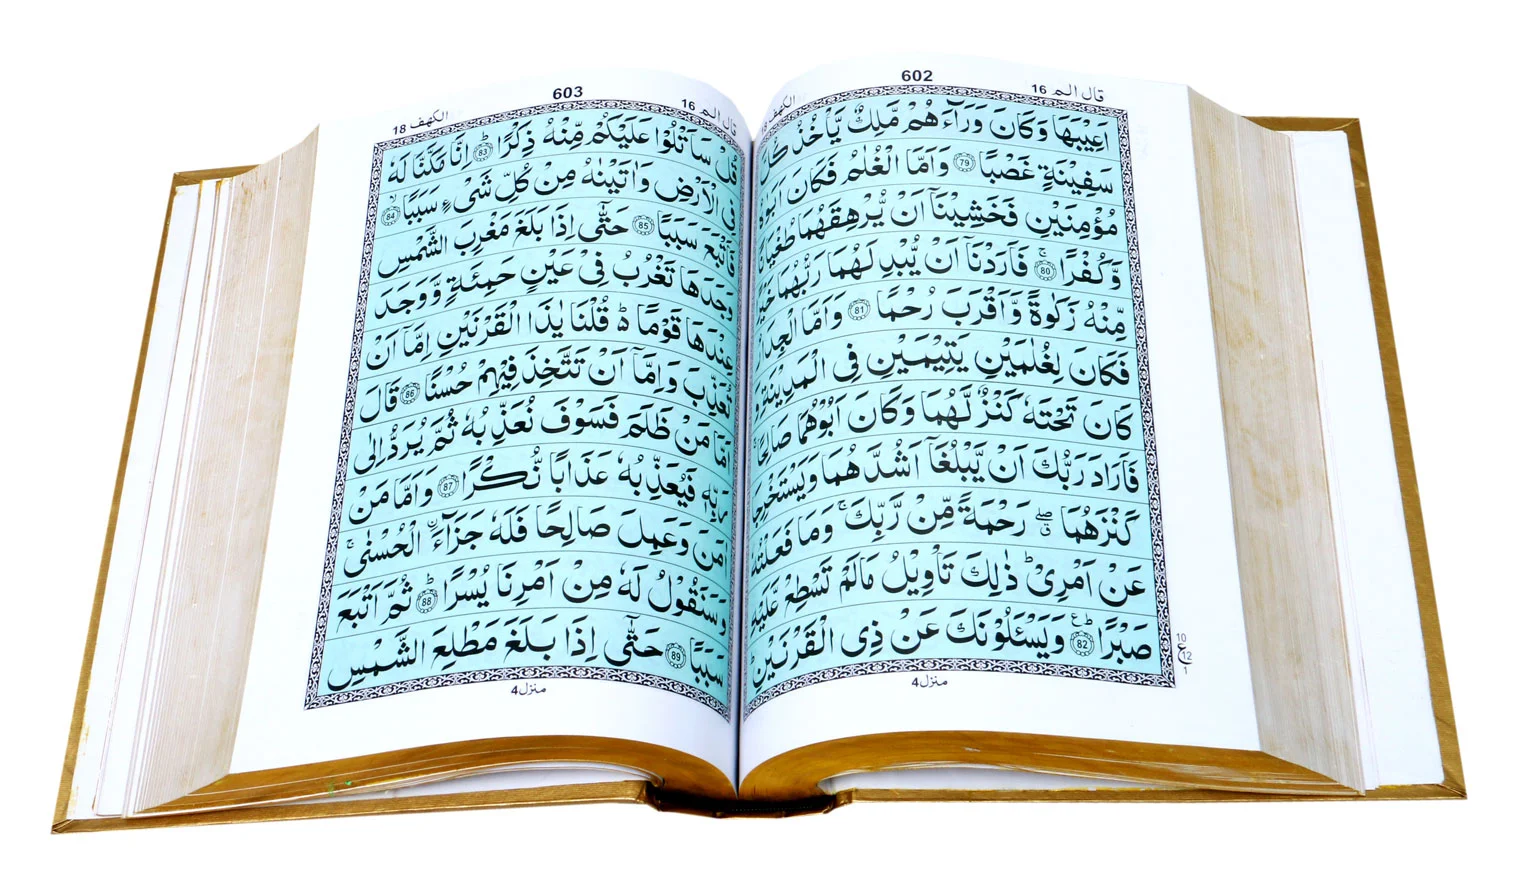 602
قال الم 16
الكهف 18
اَعِيْبَهَا وَكَانَ وَرَآءَهُمْ مَّلِكٌ يَّاْخُذُ
سَفِيْنَةٍ غَصْبًا 79 وَاَمَّا الْغُلٰمُ فَكَانَ
مُؤْمِنَيْنِ فَخَشِيْنَآ اَنْ يُّرْهِقَهُمَا
وَّكُفْرًا ۚ 80 فَاَرَدْنَآ اَنْ يُّبْدِلَهُمَا رَبُّهُمَا
مِّنْهُ زَكٰوةً وَّاَقْرَبَ رُحْمًا 81 وَاَمَّا
فَكَانَ لِغُلٰمَيْنِ يَتِيْمَيْنِ فِى الْمَدِيْنَةِ
كَانَ تَحْتَهٗ كَنْزٌ لَّهُمَا وَكَانَ اَبُوْهُمَا صَالِحًا
فَاَرَادَ رَبُّكَ اَنْ يَّبْلُغَآ اَشُدَّهُمَا
كَنْزَهُمَا ۖ ق رَحْمَةً مِّنْ رَّبِّكَ ۚ وَمَا
عَنْ اَمْرِىْ ؕ ذٰلِكَ تَاْوِيْلُ مَالَمْ تَسْطِعْ عَّلَيْهِ
صَبْرًا ؕ ع 82 وَيَسْـَٔلُوْنَكَ عَنْ ذِى الْقَرْنَيْنِ ؕ
10
ع 12
1
منزل 4
603
قال الم 16
الكهف 18
قُلْ سَاَتْلُوْا عَلَيْكُمْ مِّنْهُ ذِكْرًا ؕ 83 اِنَّا مَكَّنَّا لَهٗ
فِى الْاَرْضِ وَاٰتَيْنٰهُ مِنْ كُلِّ شَىْءٍ سَبَبًا ۙ 84
فَاَتْبَعَ سَبَبًا 85 حَتّٰٓى اِذَا بَلَغَ مَغْرِبَ الشَّمْسِ
وَجَدَهَا تَغْرُبُ فِىْ عَيْنٍ حَمِئَةٍ وَّوَجَدَ
عِنْدَهَا قَوْمًا ؕ۬ قُلْنَا يٰذَا الْقَرْنَيْنِ اِمَّآ اَنْ
تُعَذِّبَ وَاِمَّآ اَنْ تَتَّخِذَ فِيْهِمْ حُسْنًا 86 قَالَ
اَمَّا مَنْ ظَلَمَ فَسَوْفَ نُعَذِّبُهٗ ثُمَّ يُرَدُّ اِلٰى
رَبِّهٖ فَيُعَذِّبُهٗ عَذَابًا نُّكْرًا 87 وَاَمَّا مَنْ
اٰمَنَ وَعَمِلَ صَالِحًا فَلَهٗ جَزَآءَ ۨ الْحُسْنٰى ۚ
وَسَنَقُوْلُ لَهٗ مِنْ اَمْرِنَا يُسْرًا ؕ 88 ثُمَّ اَتْبَعَ
سَبَبًا 89 حَتّٰٓى اِذَا بَلَغَ مَطْلِعَ الشَّمْسِ
منزل 4